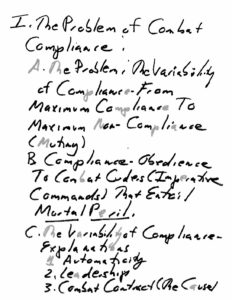 I. The Problem of Combat
Compliance.
A. The Problem: The Variability
of Compliance-From
Maximum Compliance To
Maximum Non-Compliance
(Mutiny)
B Compliance-Obedience
To Combat Codes (Imperative
Commands) That Entail
Mortal Peril.
C. The Variability of Compliance-
Explanations
1. Automaticity
2. Leadership
3. Combat Contract (The Cause)